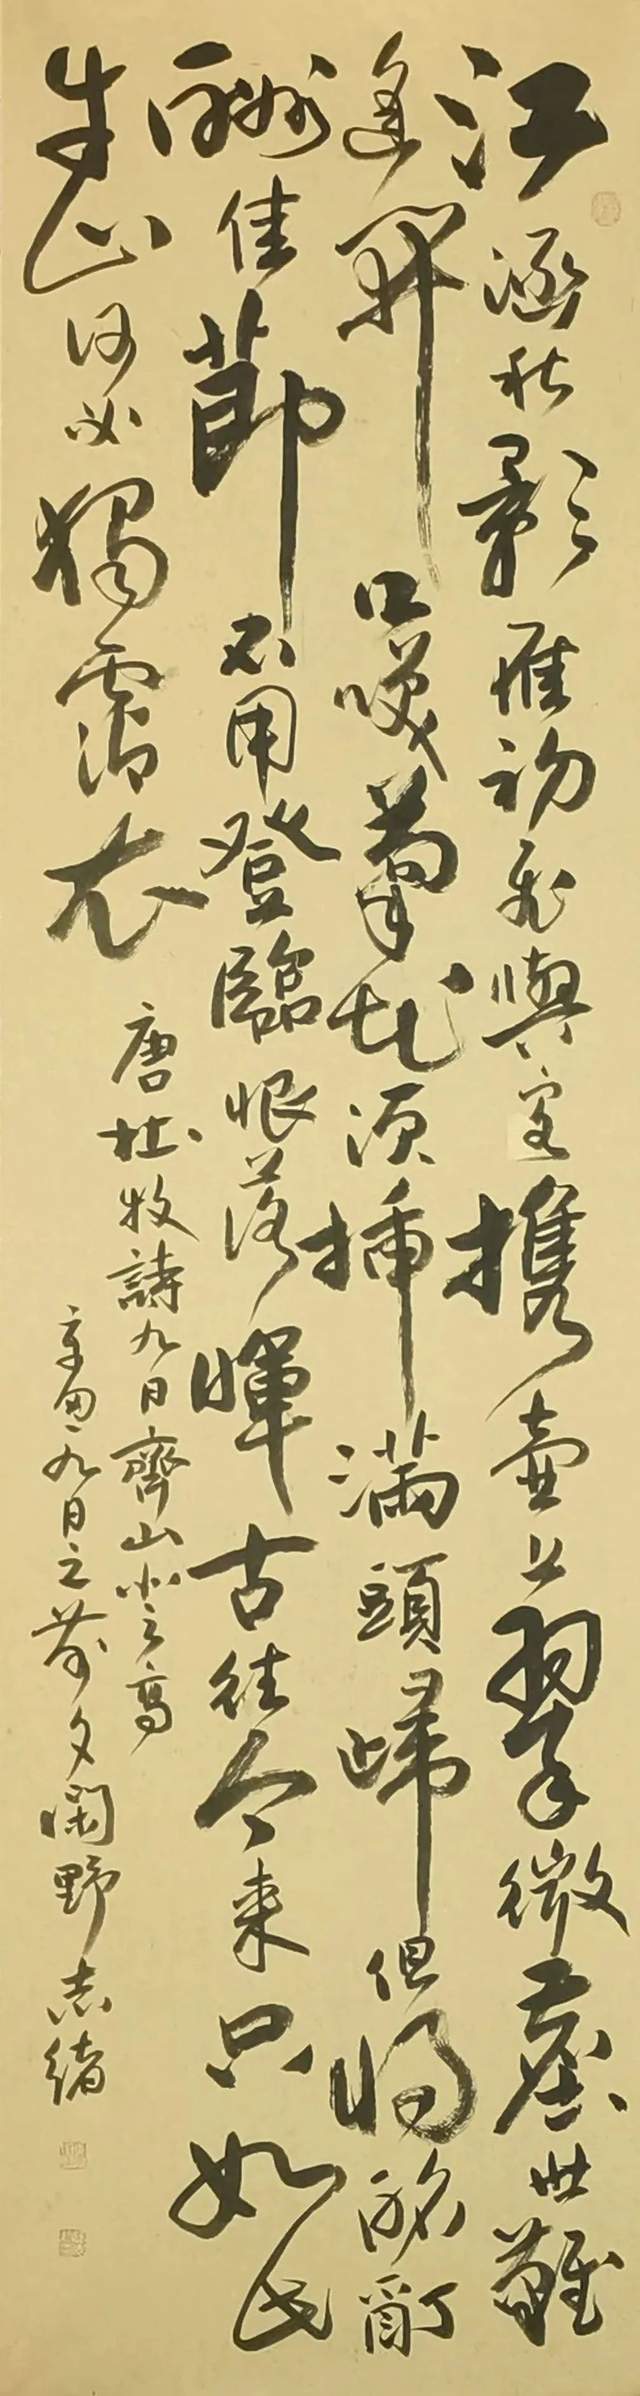 江涵秋影雁初飛與客携壺上翠微塵世難
逢開口笑菊花須插滿頭歸但將酩酊
酬佳節不用登臨恨落暉古往今來只如此
牛山何必獨霑衣
唐杜牧詩九日齊山登高
辛 九日之前夕 野志緒